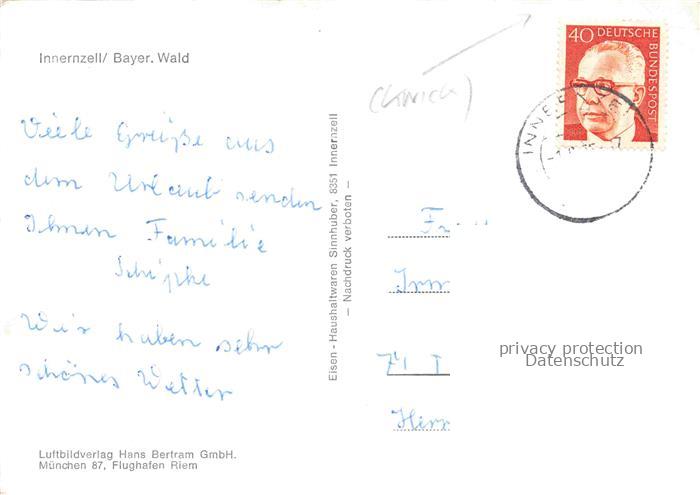 Innernzell/ Bayer. Wald
Viele Grüße aus
dem Urlaub senden
Ihnen Familie
Schipke
Wir haben sehr
schönes Wetter
Luftbildverlag Hans Bertram GmbH.
München 87, Flughafen Riem
Eisen - Haushaltwaren Sinnhuber, 8351 Innernzell
— Nachdruck verboten —
40 DEUTSCHE
BUNDESPOST
privacy protection
Datenschutz
Herr